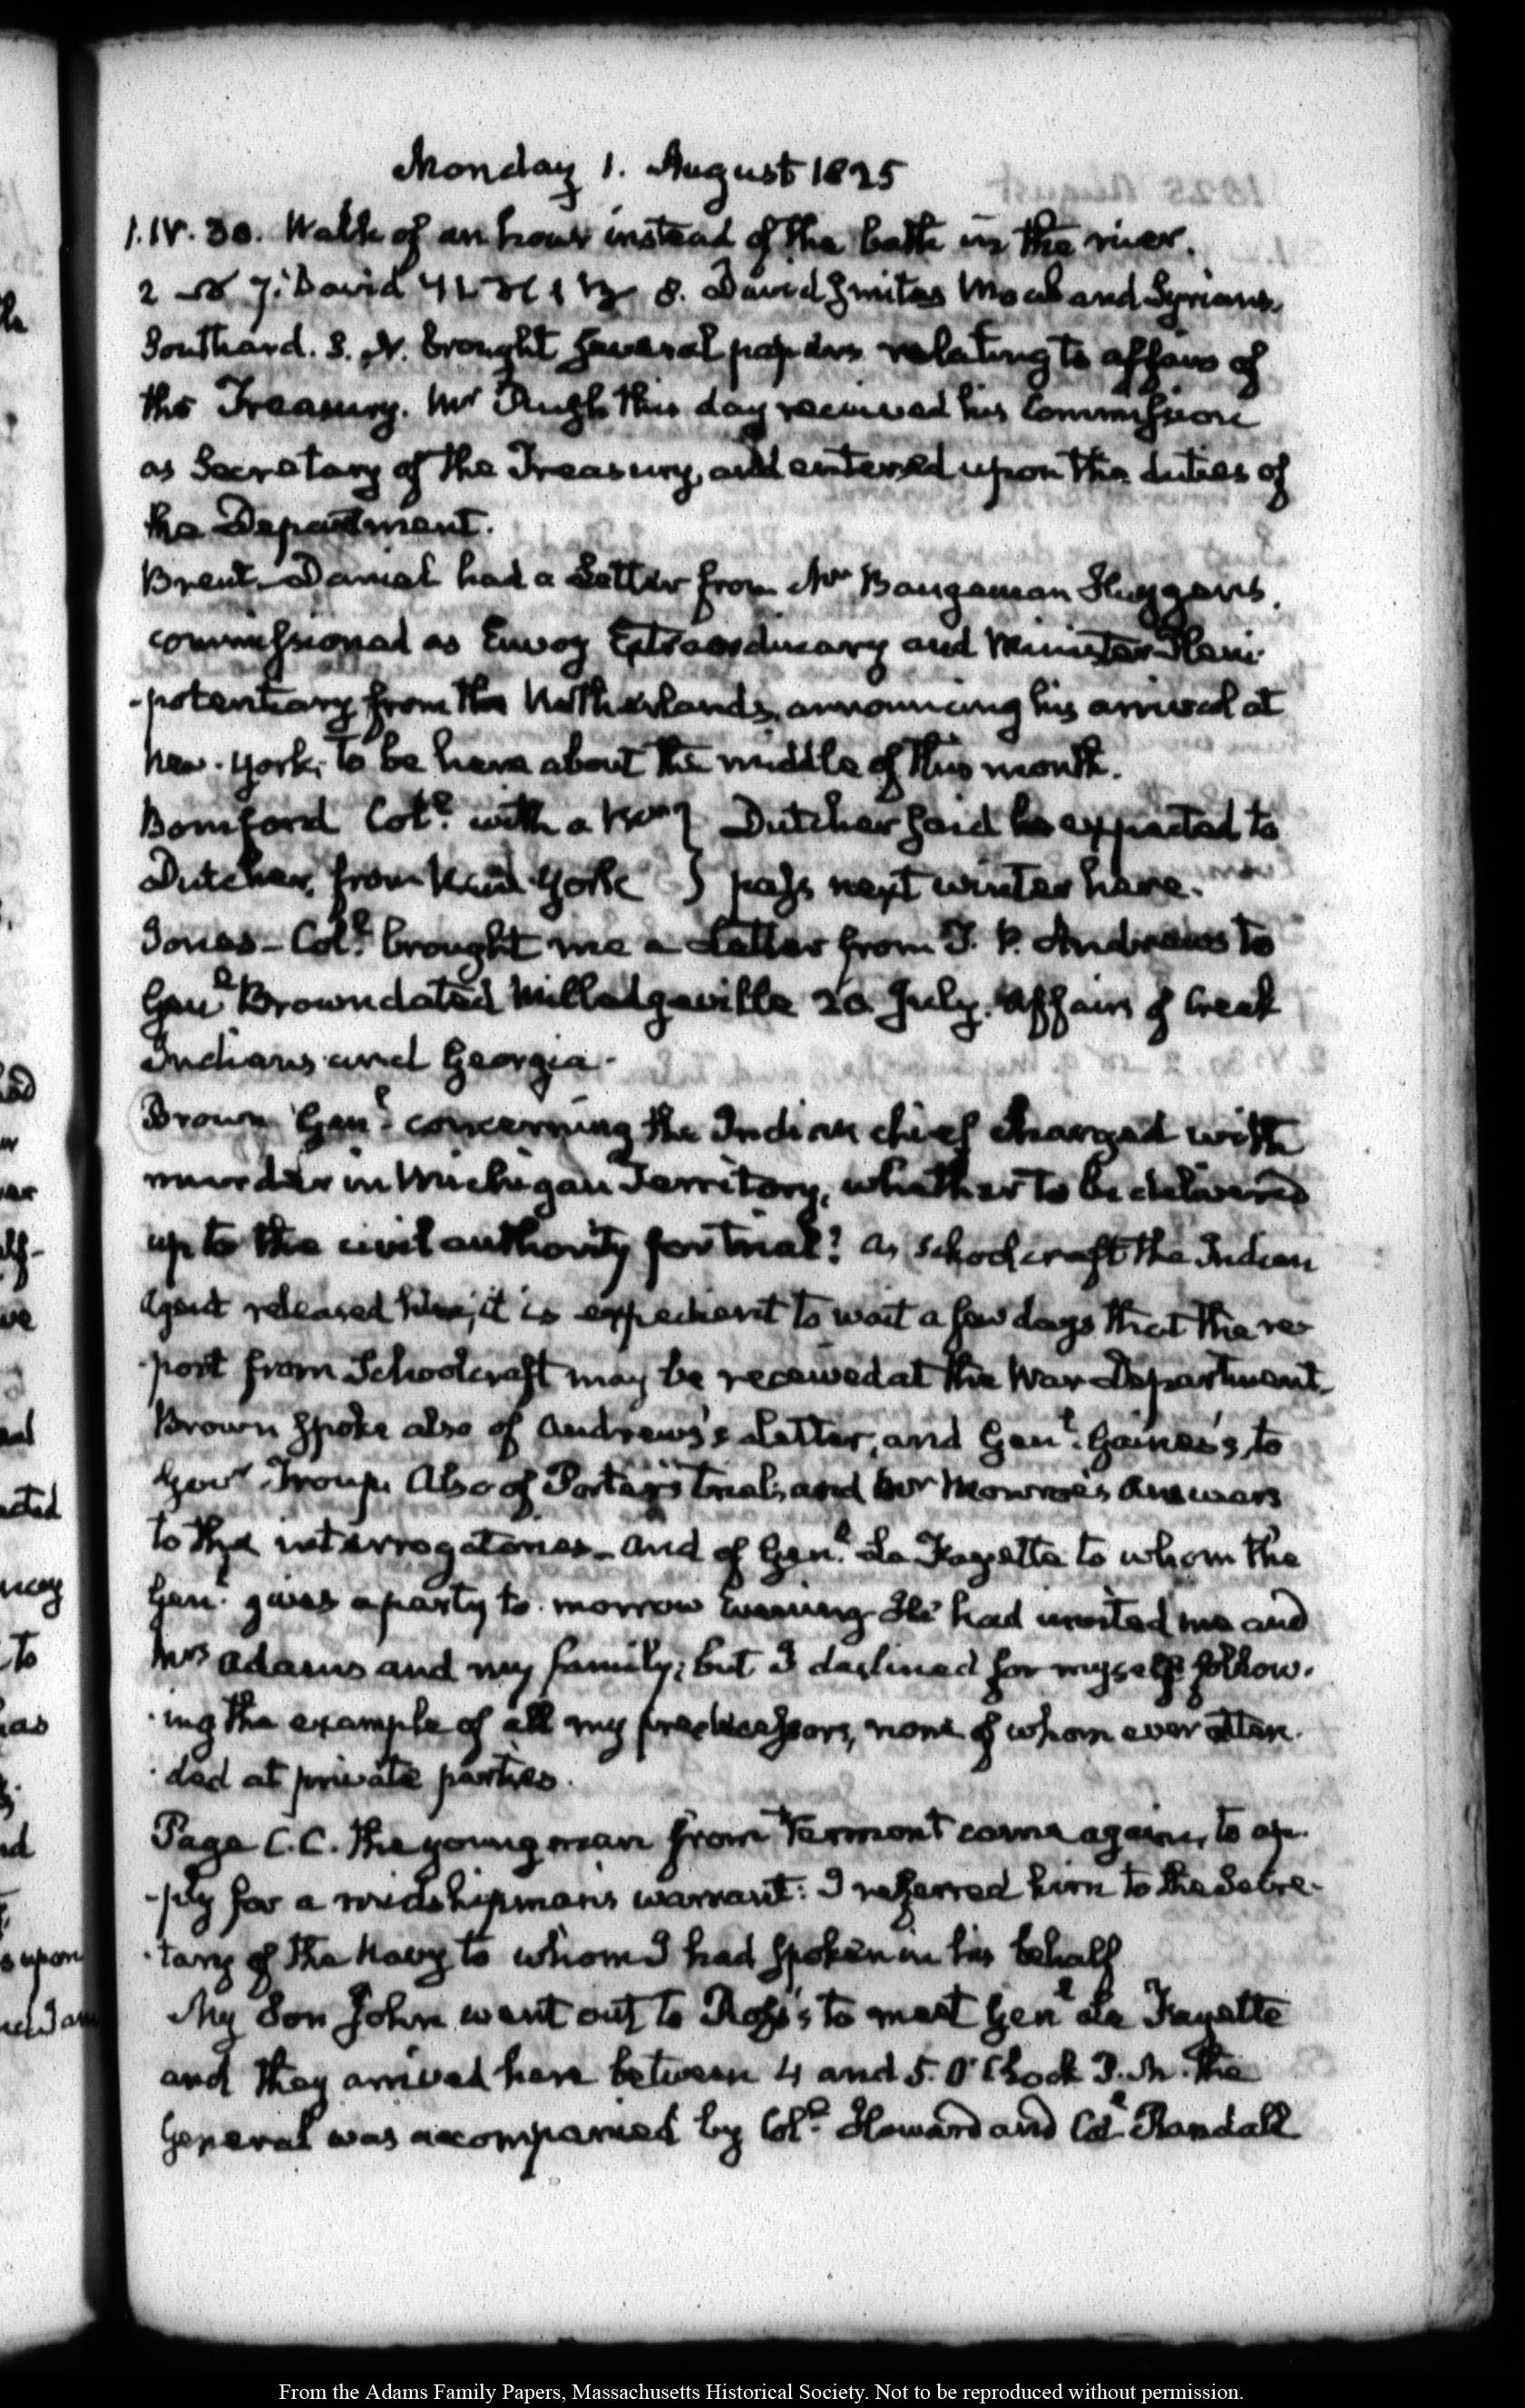 Monday 1. August 1825
1. IV. 30. Walk of an hour instead of the bath in the river.
2 7. David 8. David smites Moab and Syrians.
Southard. S. N. brought several papers relating to affairs of
the Treasury. Mr Rush this day received his Commission
as Secretary of the Treasury, and entered upon the duties of
the Department.
Brent. Daniel had a Letter from Mr Bangeman Huygens,
commissioned as Envoy Extraordinary and Minister Pleni-
-potentiary from the Netherlands, announcing his arrival at
New-York; to be here about the middle of this month.
Bomford Coll. with a Mr } Dutcher said he expected to
Dutcher, from New York } pass next winter here.
Jones—Coll. brought me a Letter from T. P. Andrews to
Genl Brown dated Milledgeville 20 July. Affairs of Creek
Indians and Georgia.
Brown Genl. concerning the Indian chief charged with
murder in Michigan Territory, whether to be delivered
up to the civil authority for trial? As Schoolcraft the Indian
Agent released him, it is expedient to wait a few days that the re-
-port from Schoolcraft may be received at the War Department.
Brown spoke also of Andrews's Letter, and Genl. Gaines's, to
Govr Troup. Also of Porter's trial, and Mr Monroe's Answers
to the interrogatories—and of Genl. La Fayette to whom the
Genl. gives a party to-morrow Evening. He had invited me and
Mrs Adams and my family; but I declined for myself follow-
-ing the example of all my predecessors, none of whom ever atten-
-ded at private parties.
Page C. C. the young man from Vermont came again, to ap-
-ply for a midshipman's warrant: I referred him to the Secre-
-tary of the Navy to whom I had spoken in his behalf
My Son John went out to Ross's to meet Genl La Fayette
and they arrived here between 4 and 5. O'Clock P.M. The
General was accompanied by Coll. Howard and Coll. Randall
From the Adams Family Papers, Massachusetts Historical Society. Not to be reproduced without permission.